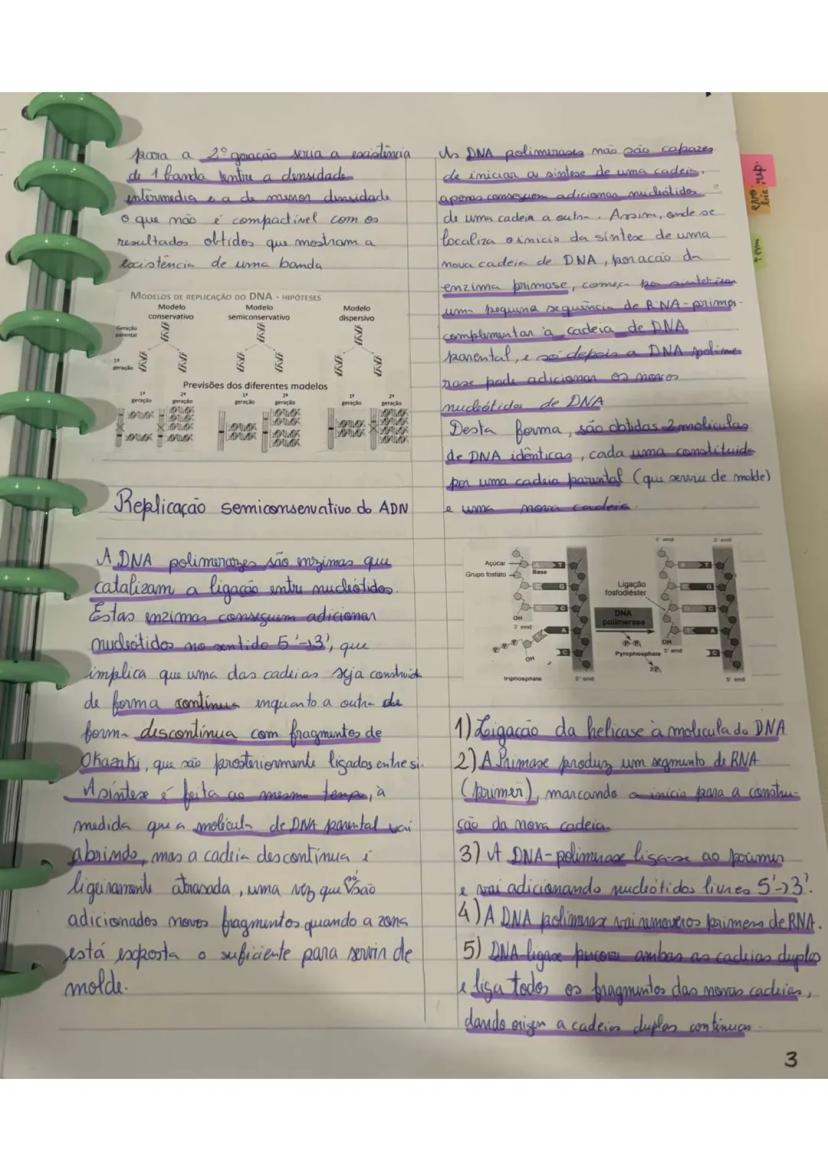 para a 2ª geração seria a existência
de 1 banda entre a densidade
intermedia e a de menor densidade
o que não é compactivel com os
resultados obtidos que mostram a
existência de uma banda
MODELOS DE REPLICAÇÃO DO DNA - HIPÓTESES
Modelo conservativo
Modelo semiconservativo
Modelo dispersivo
Geração parental
1ª geração
Previsões dos diferentes modelos
1ª geração 2ª geração 1ª geração 2ª geração 1ª geração 2ª geração
Replicação semiconservativo do ADN
A DNA polimerazes são enzimas que
catalizam a ligação entre nucleótidos.
Estas enzimas conseguem adicionar
nucleótidos no sentido 5'→3', que
implica que uma das cadeias seja construida
de forma contínua enquanto a outra de
forma descontínua com fragmentos de
Okazaki, que são posteriormente ligados entre si.
A síntese é feita ao mesmo tempo, à
medida que a molécula de DNA parental vai
abrindo, mas a cadeia descontínua é
ligeiramente atrasada, uma vez que só são
adicionados novos fragmentos quando a zona
está exposta o suficiente para servir de
molde.
As DNA polimerases não são capazes
de iniciar a síntese de uma cadeia,
apenas conseguem adicionar nucleótidos
de uma cadeia a outra. Assim, onde se
localiza o inicio da síntese de uma
nova cadeia de DNA, por acção da
enzima primase, começa por sintetizar
uma pequena sequência de RNA-primer
complementar à cadeia de DNA
parental, e só depois a DNA polime
rase pode adicionar os novos
nucleótidos de DNA
Desta forma, são obtidas 2 moléculas
de DNA idênticas, cada uma constituida
por uma cadeia parental (que serviu de molde)
e uma nova cadeia.
5' end 3' end
Açúcar
Grupo fosfato
Base
Ligação fosfodiéster
OH
3' end
DNA polimerase
OH
Pyrophosphate
3' end
OH
triphosphate
5' end
5' end
1) Ligação da helicase à molécula do DNA
2) A Primase produz um segmento de RNA
(primer), marcando o inicio para a constru-
ção da nova cadeia
3) A DNA-polimerase liga-se ao primer
e vai adicionando nucleótidos livres 5'→3'.
4) A DNA polimerase vai remover os primers de RNA.
5) DNA-ligase percorre ambas as cadeias duplas
e liga todos os fragmentos das novas cadeias,
dando origem a cadeias duplas contínuas.
3